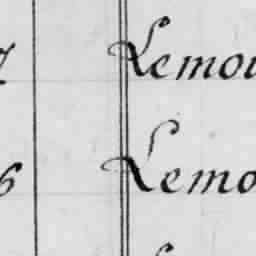 7 Lemou
6 Lemo